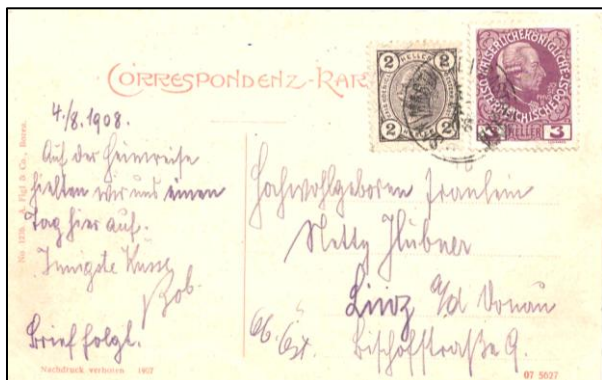 CORRESPONDENZ-KAR
2 HELLER 2
2 2
KAISERLICHE KÖNIGLICHE
ÖSTERREICHISCHE POST
HELLER 3
4./8. 1908.
Auf der Heimreise
hielten wir uns einen
Tag hier auf.
Innigste Küsse
Rob.
Brief folgt.
Hochwohlgeboren Fräulein
Netty Hübner
Linz a/d Donau
Bischofstraße 9.
Nachdruck verboten 1907
07 5027